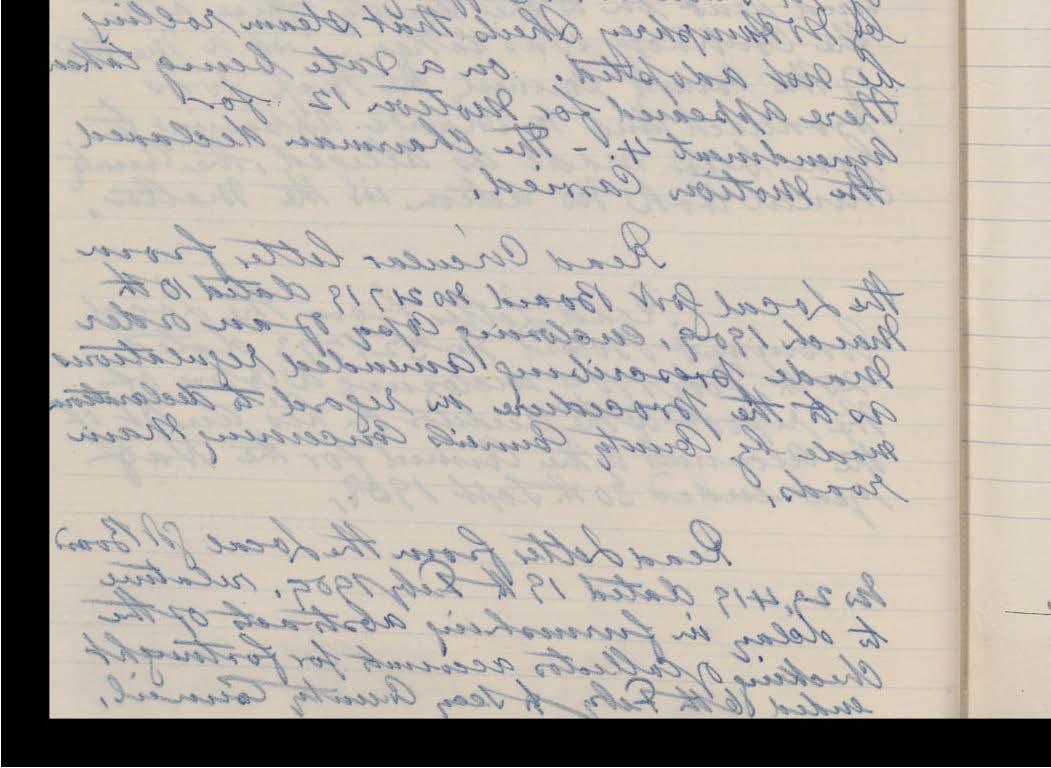 by Mr Humphrey Shiels that steam rolling
be not adopted. on a vote being taken
there appeared for Motion 12 for
amendment 4. - The Chairman declared
the Motion Carried.
Read Circular letter from
the Local Govt Board No 21719 dated 10th
March 1909, enclosing Copy of an Order
made prescribing amended regulations
as to the procedure in regard to declarations
made by County Councils concerning Main
roads,
Read Letter from the Local Gt Board
No 29,419 dated 19th Feby 1909, relative
to delay in furnishing abstracts of the
Checking of Collectors accounts for fortnight
ended 6th Feby to Secy County Council,